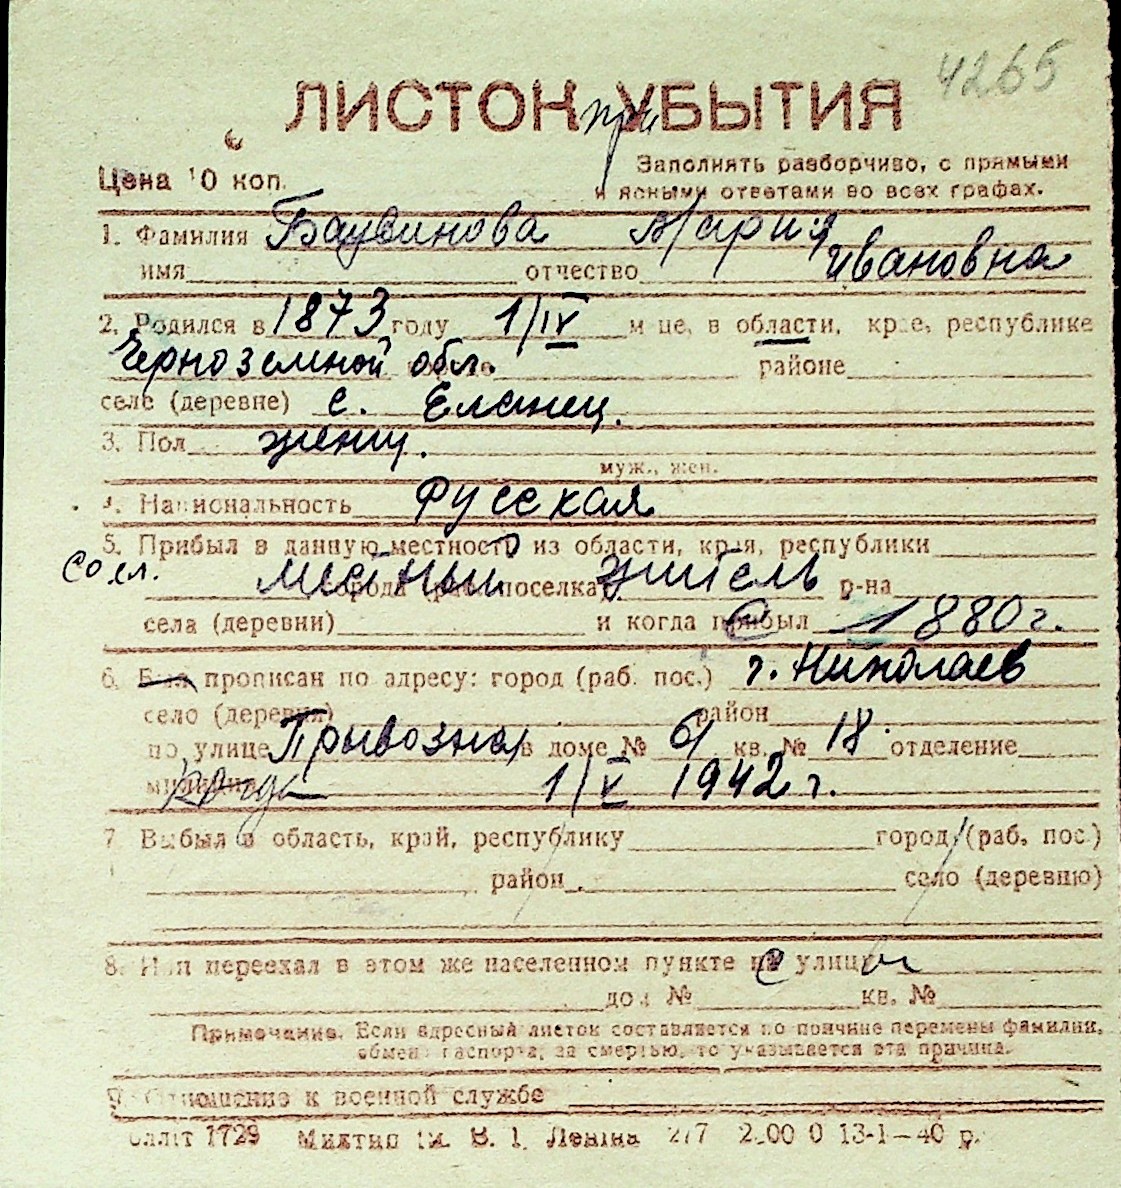 4265
ЛИСТОК при УБЫТИЯ
Цена 10 коп.
Заполнять разборчиво, с прямыми
и ясными ответами во всех графах.
1. Фамилия Баувинова Мария
имя отчество Ивановна
2. Родился в 1873 году 1/IV м-це, в области, крае, республике
Черноземной обл. районе
селе (деревне) с. Еланец.
3. Пол женщ.
муж., жен.
4. Национальность Русская
5. Прибыл в данную местность из области, края, республики
города поселка местный житель р-на
села (деревни) и когда прибыл с 1880 г.
6. Был прописан по адресу: город (раб. пос.) г. Николаев
село (деревня) район
по улице Привозная в доме № 61 кв. № 18. отделение
милиции когда 1/V 1942 г.
7 Выбыл в область, край, республику город (раб. пос.)
район село (деревню)
8. Или переехал в этом же населенном пункте на улицу
дом № кв. №
Примечание. Если адресный листок составляется по причине перемены фамилии,
обмена паспорта, за смертью, то указывается эта причина.
9. Отношение к военной службе
1729 В. І. Леніна 13-1-40 р.